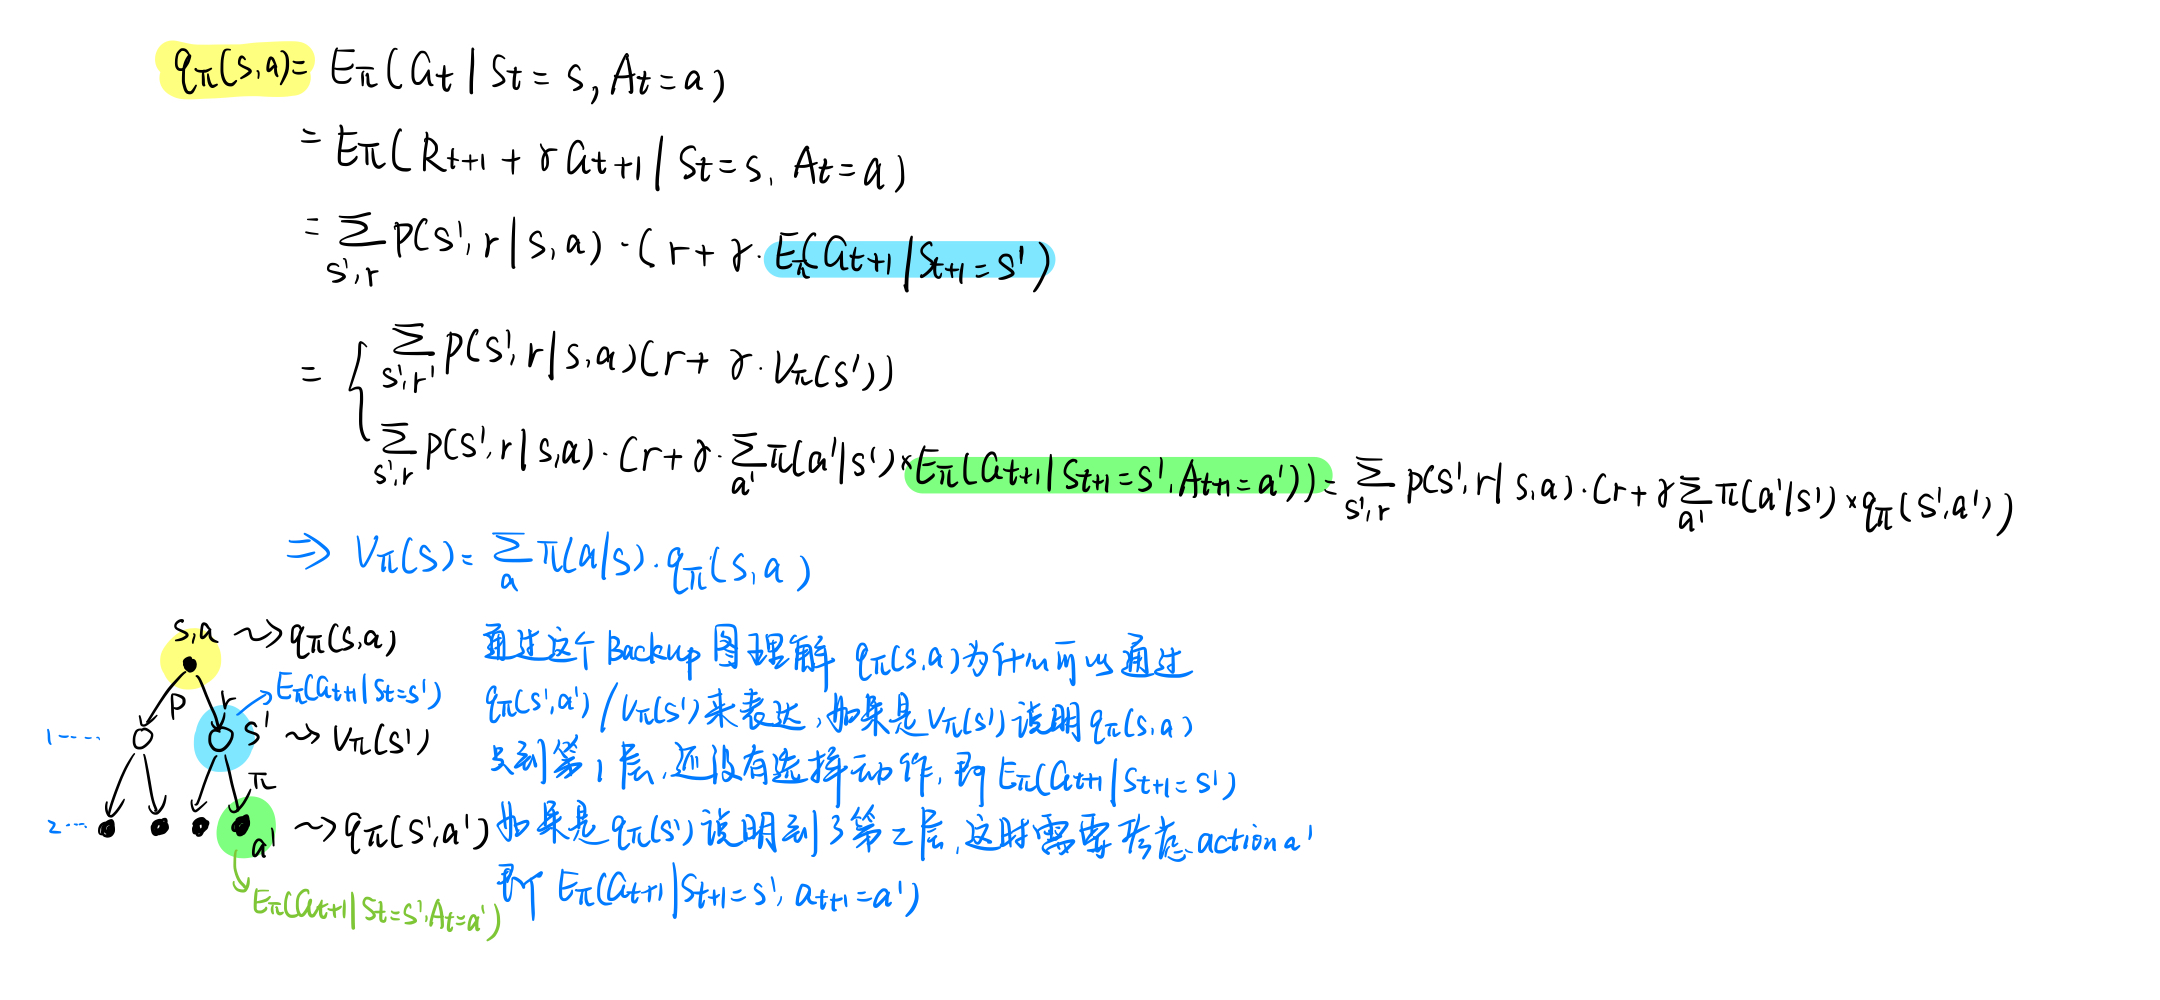 qπ(s,a)= Eπ(Gt | St = s, At = a)
= Eπ(Rt+1 + γGt+1 | St = s, At = a)
= Σs',r p(s',r|s,a)·(r + γ·Eπ(Gt+1|St+1=s')
= { Σs',r' p(s',r|s,a)(r + γ·Vπ(s'))
Σs',r p(s',r|s,a)·(r+γ·Σa' π(a'|s')×Eπ(Gt+1|St+1=s',At+1=a')) = Σs',r p(s',r|s,a)·(r+γΣa' π(a'|s')×qπ(s',a'))
⇒ Vπ(s)= Σa π(a|s)·qπ(s,a)
s,a ~> qπ(s,a)
p r
Eπ(Gt+1|St=s')
1---- s' ~> Vπ(s')
π
2--- a' ~> qπ(s',a')
Eπ(Gt+1|St=s',At=a')
通过这个Backup图理解 qπ(s,a)为什么可以通过
qπ(s',a')/Vπ(s')来表达,如果是Vπ(s')说明qπ(s,a)
只到第1层,还没有选择动作,即Eπ(Gt+1|St+1=s')
如果是qπ(s')说明到了第二层,这时需要考虑action a'
即Eπ(Gt+1|St+1=s',at+1=a')